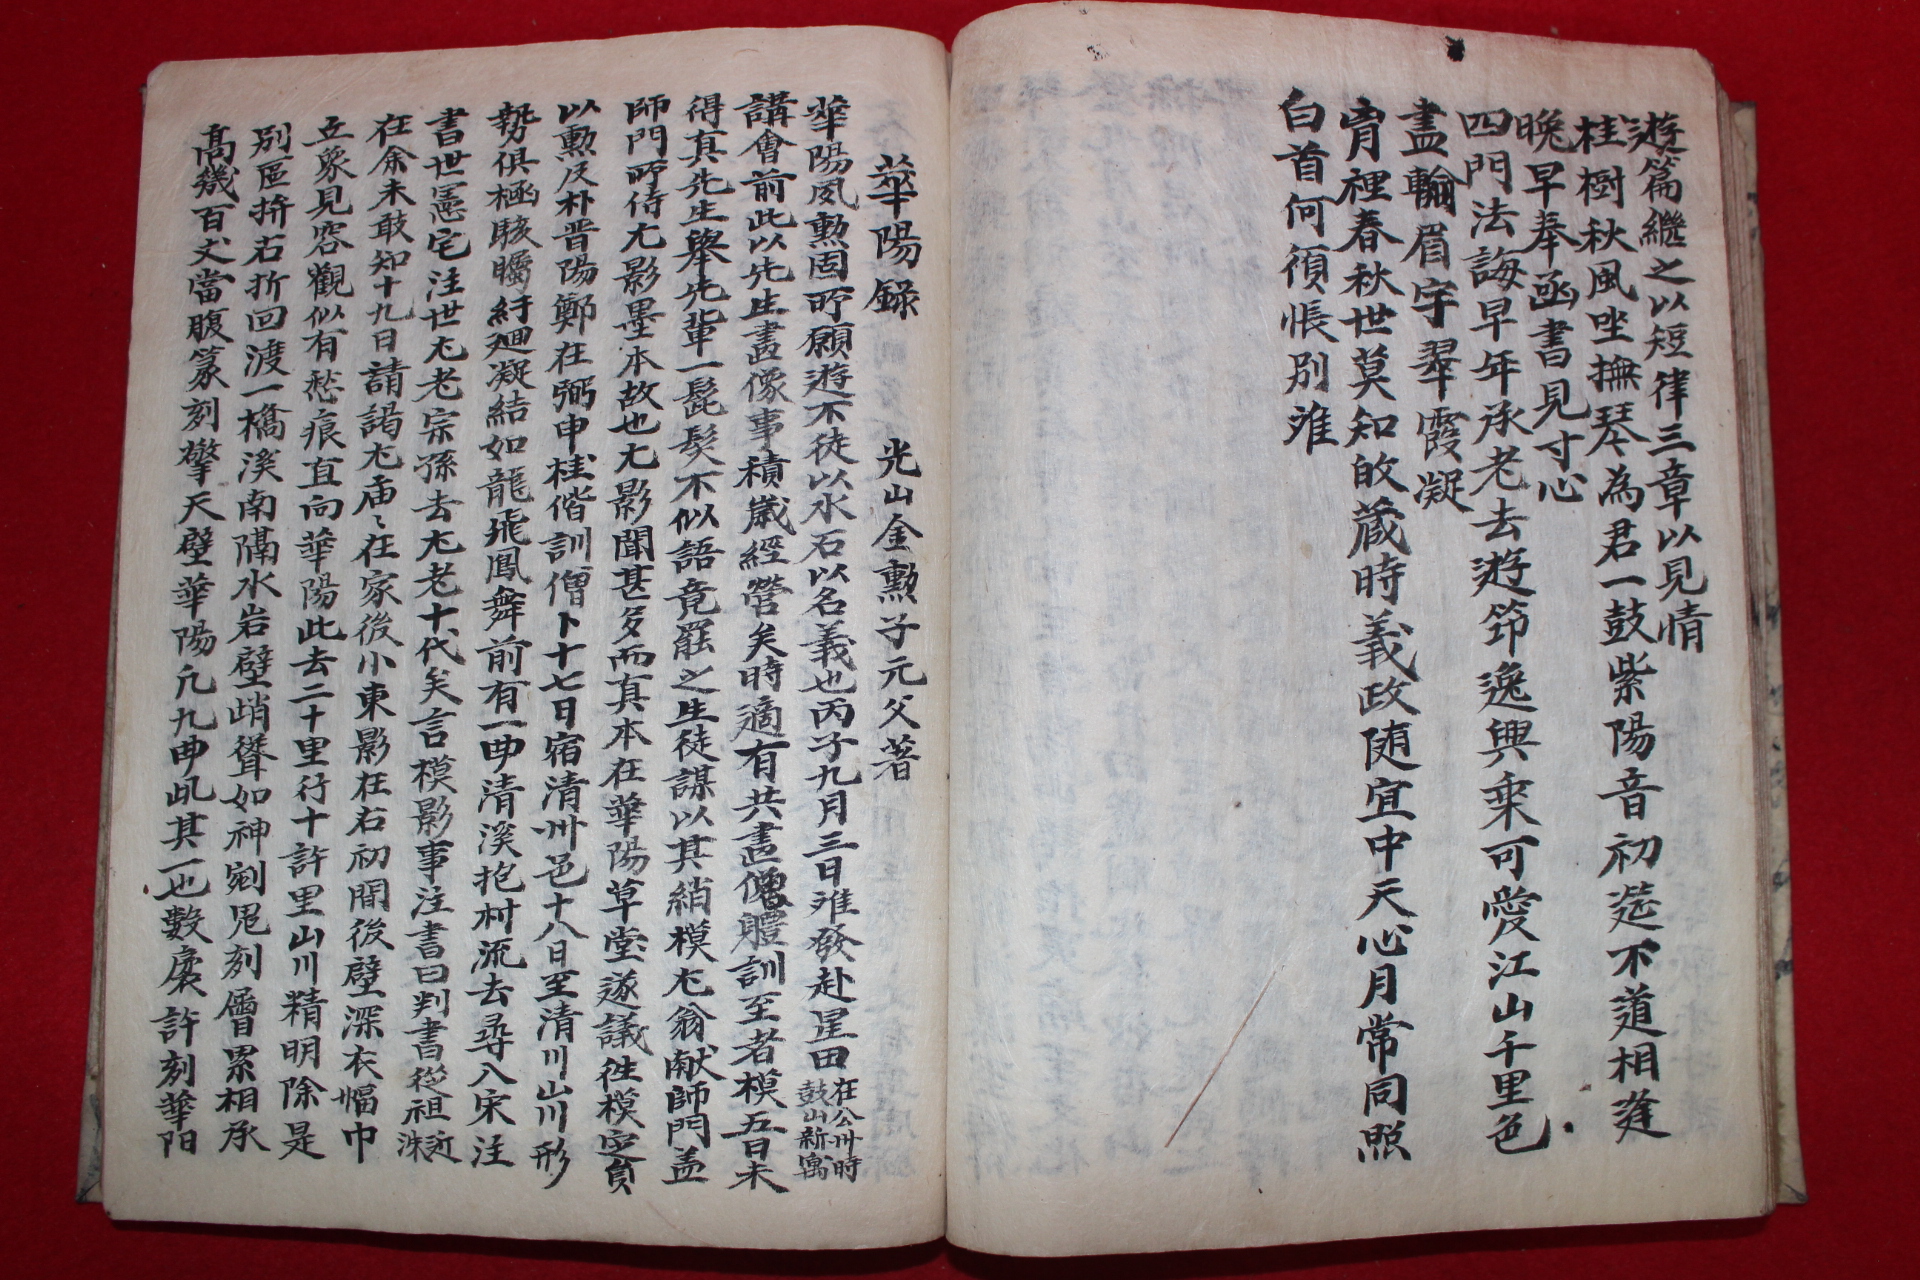 遊篇繼之以短律三章以見情
桂樹秋風唑撫琴為君一鼓紫陽音初筵不道相逢
晚早奉函書見寸心
四門法誨早年承老去遊笻逸興乘可愛江山千里色
盡輸眉宇翠霞凝
胷裡春秋世莫知攽歲時義政随宜中天心月常同照
白首何須悵別遅
華陽録　光山金勲子元父著
華陽夙勲固所願遊不徒以水石以名義也丙子九月三日淮發赴星田在公卅時鼓山新寓
講會前此以先生畵像事積歲經營矣時適有共畵僧體訓至者模五日未
得真先生舉先輩一髭髮不似語竟罷之生徒謀以其綃模尤翁献師門盖
師門所侍尤影墨本故也尤影聞甚多而真本在華陽草堂遂議徃模定負
以勲及朴晋陽鄭在弼申桂偕訓僧卜十七日宿清州邑十八日至清川山川形
勢俱極駭矚紆廻凝結如龍飛鳳舞前有一曲清溪抱村流去尋入宋注
書世憲宅注世尤老宗孫去尤老十代矣言模影事注書曰判書從祖洙近
在余未敢知十九日請謁尤庙〻在家後小東影在右初間後壁深衣幅巾
立象見容觀似有愁痕直向華陽此去二十里行十許里山川精明除是
別區挤石折回渡一橋溪南隔水岩壁峭聳如神剜鬼刻層累相承
髙幾百丈當腹篆刻擎天壁華陽凢九曲此其一也數處許刻華阳